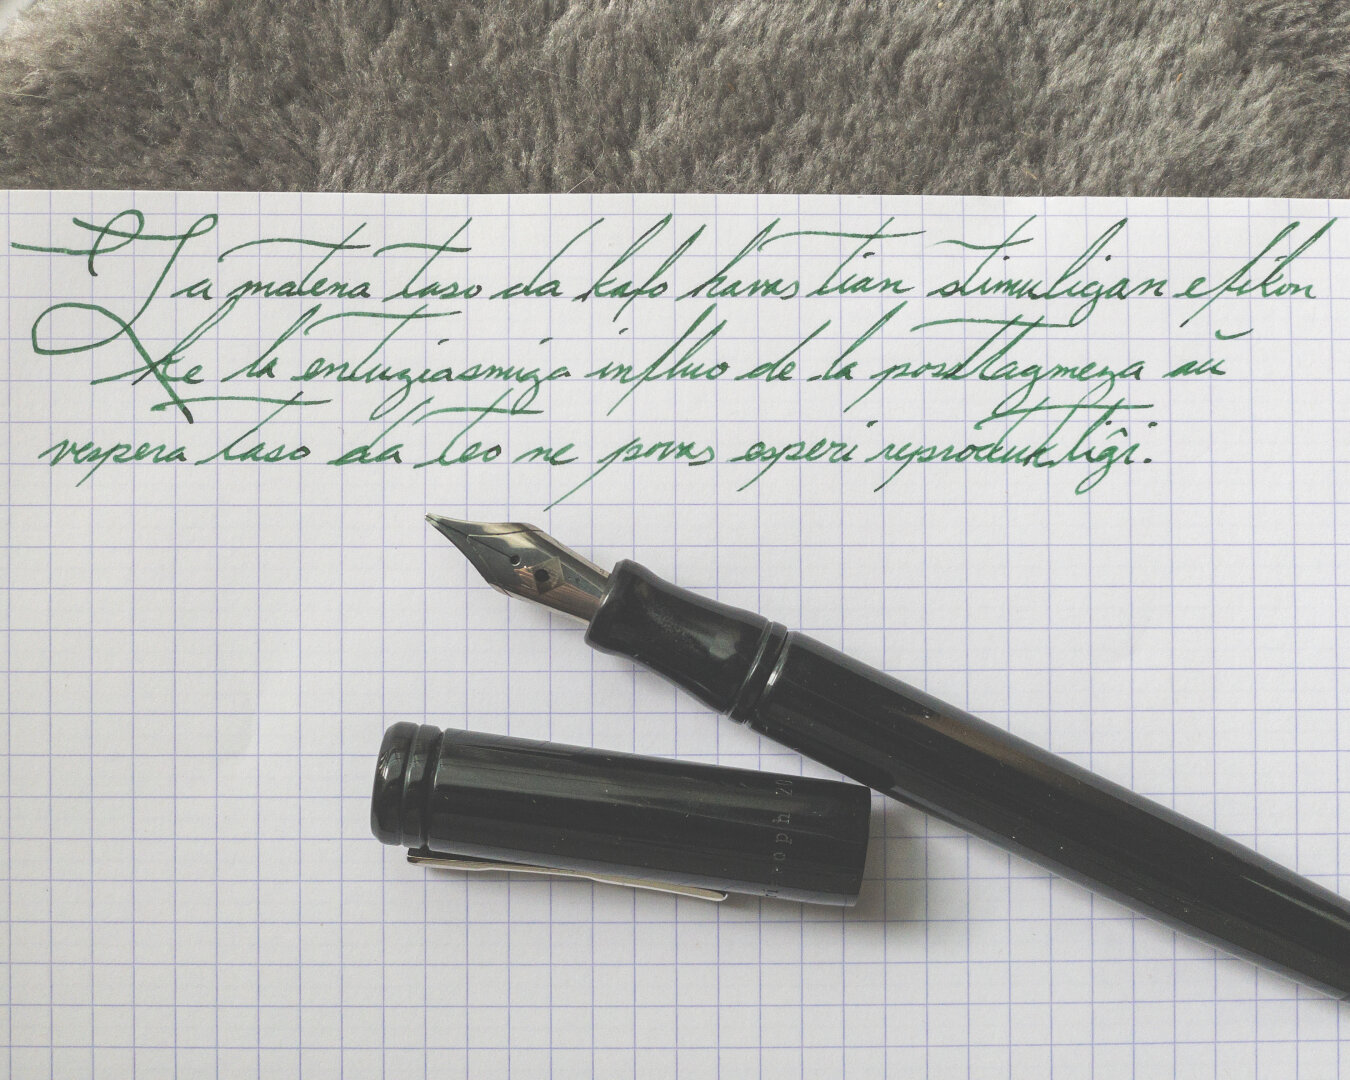 La matena taso da kafo havas tian stimuligan efikon
ke la entuziasmiga influo de la posttagmeza aŭ
vespera taso da teo ne povas esperi reproduktiĝi.
oph 20